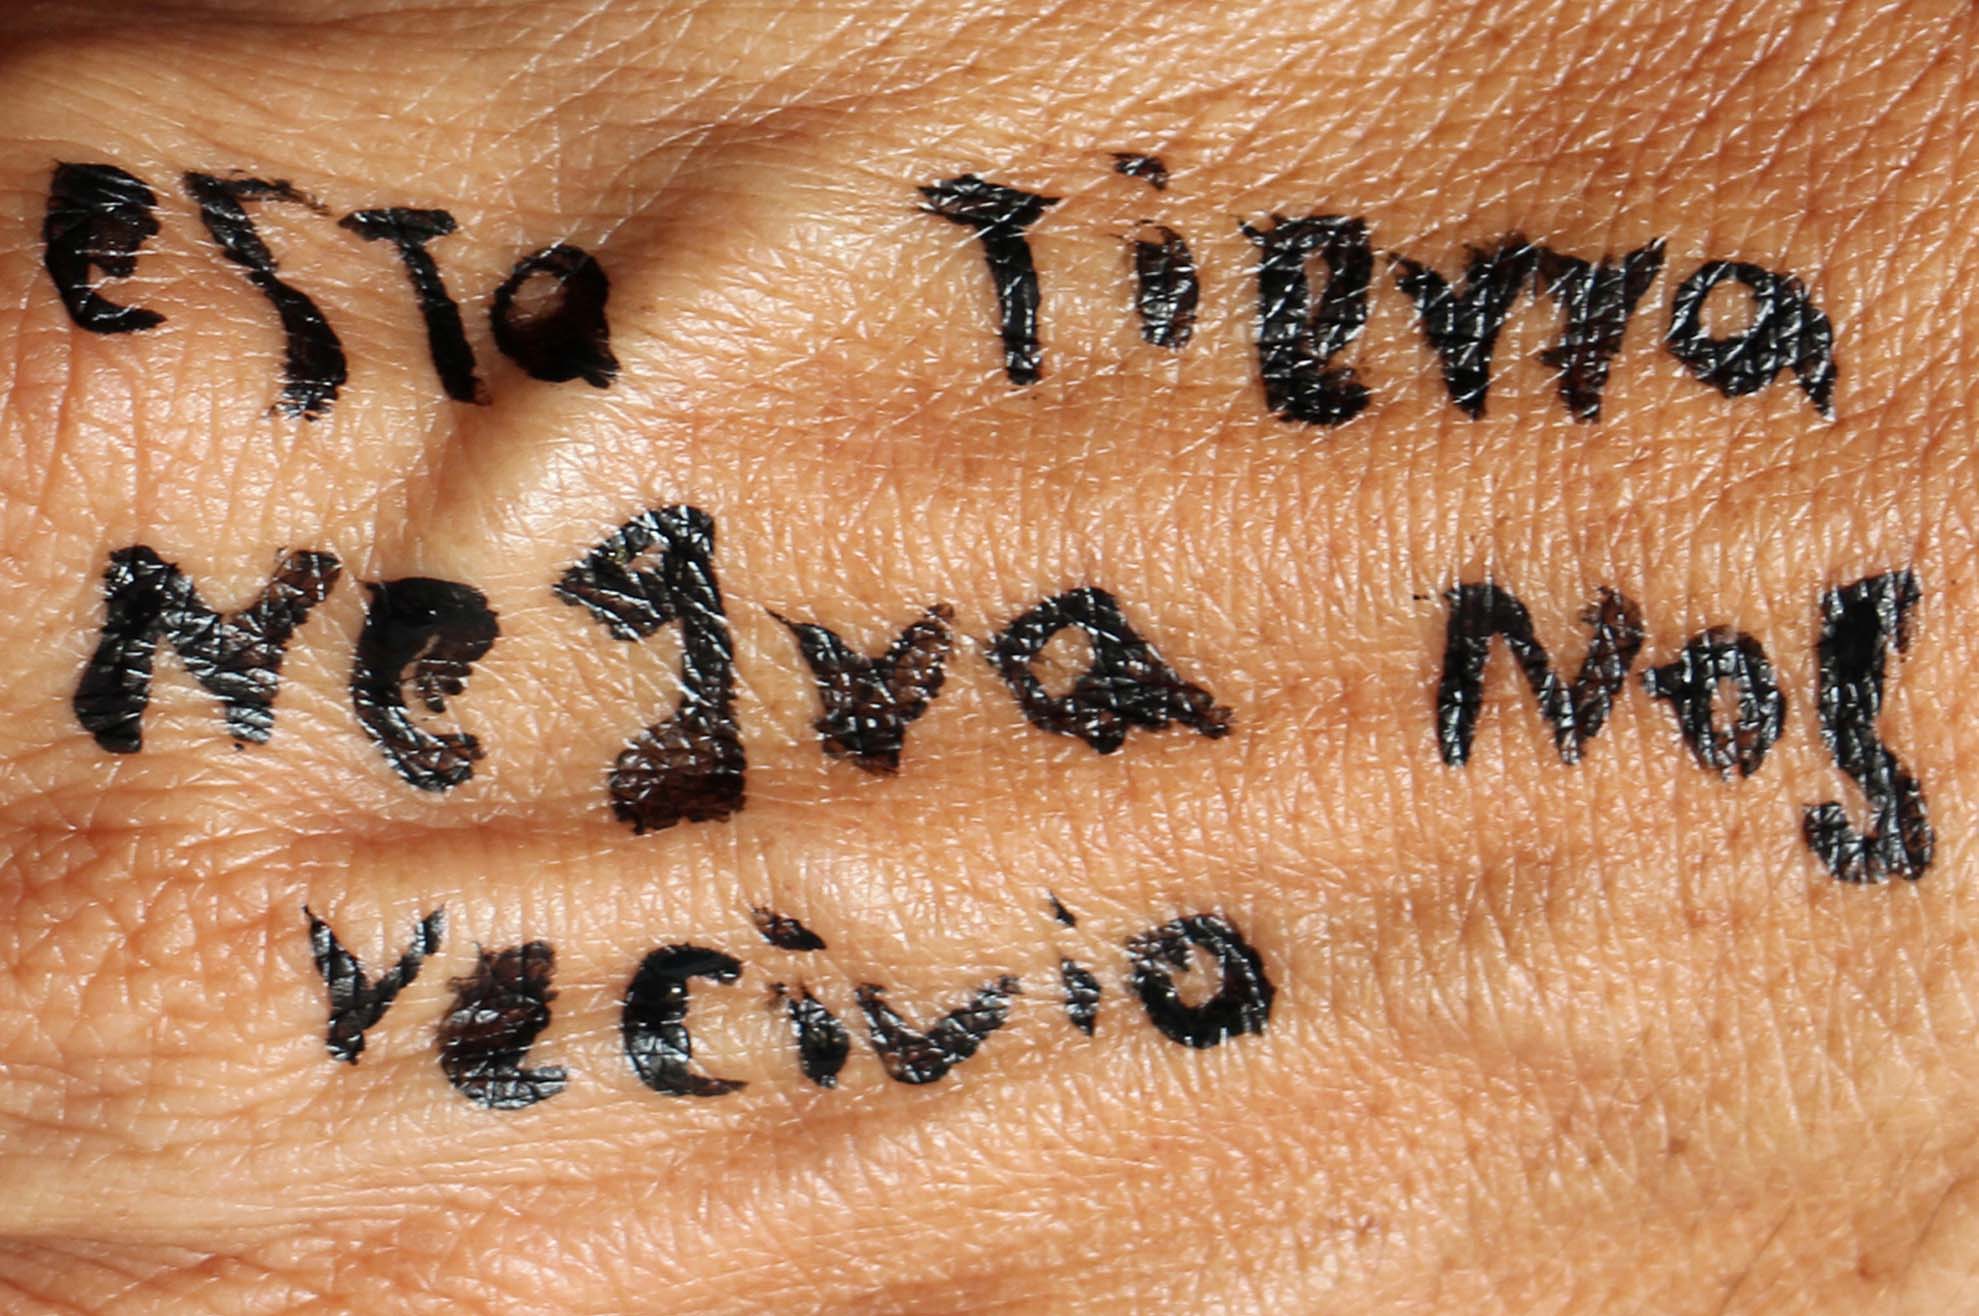 esta Tierra
Negra Nos
recivio